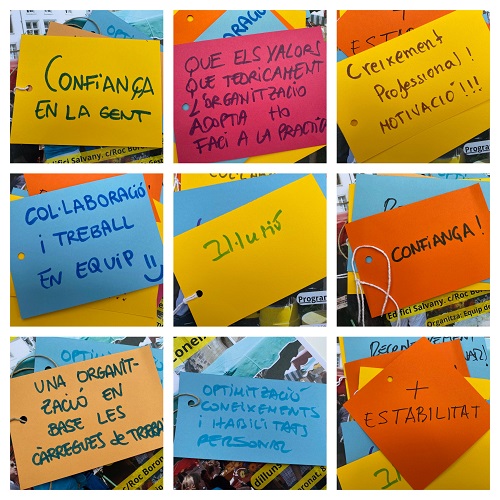 CONFIANÇA
EN LA GENT
Edifici Salvany. c/Roc Boronat
QUE ELS VALORS
QUE TEÒRICAMENT
L'ORGANITZACIÓ
ADOPTA HO
FACI A LA PRÀCTICA
Creixement
Professional!
MOTIVACIÓ!!!
Progra
COL·LABORACIÓ
i TREBALL
EN EQUIP
Il·lusió
Program
CONFIANÇA!
Edifici Salvany. c/Roc Bor
Organitza: Equip de
UNA ORGANIT-
ZACIÓ EN
BASE LES
CÀRREGUES de TREBA
c/Roc Boron
OPTIMITZACIÓ
CONEIXEMENTS
I HABILITATS
PERSONAL
dilluns
+
ESTABILITAT